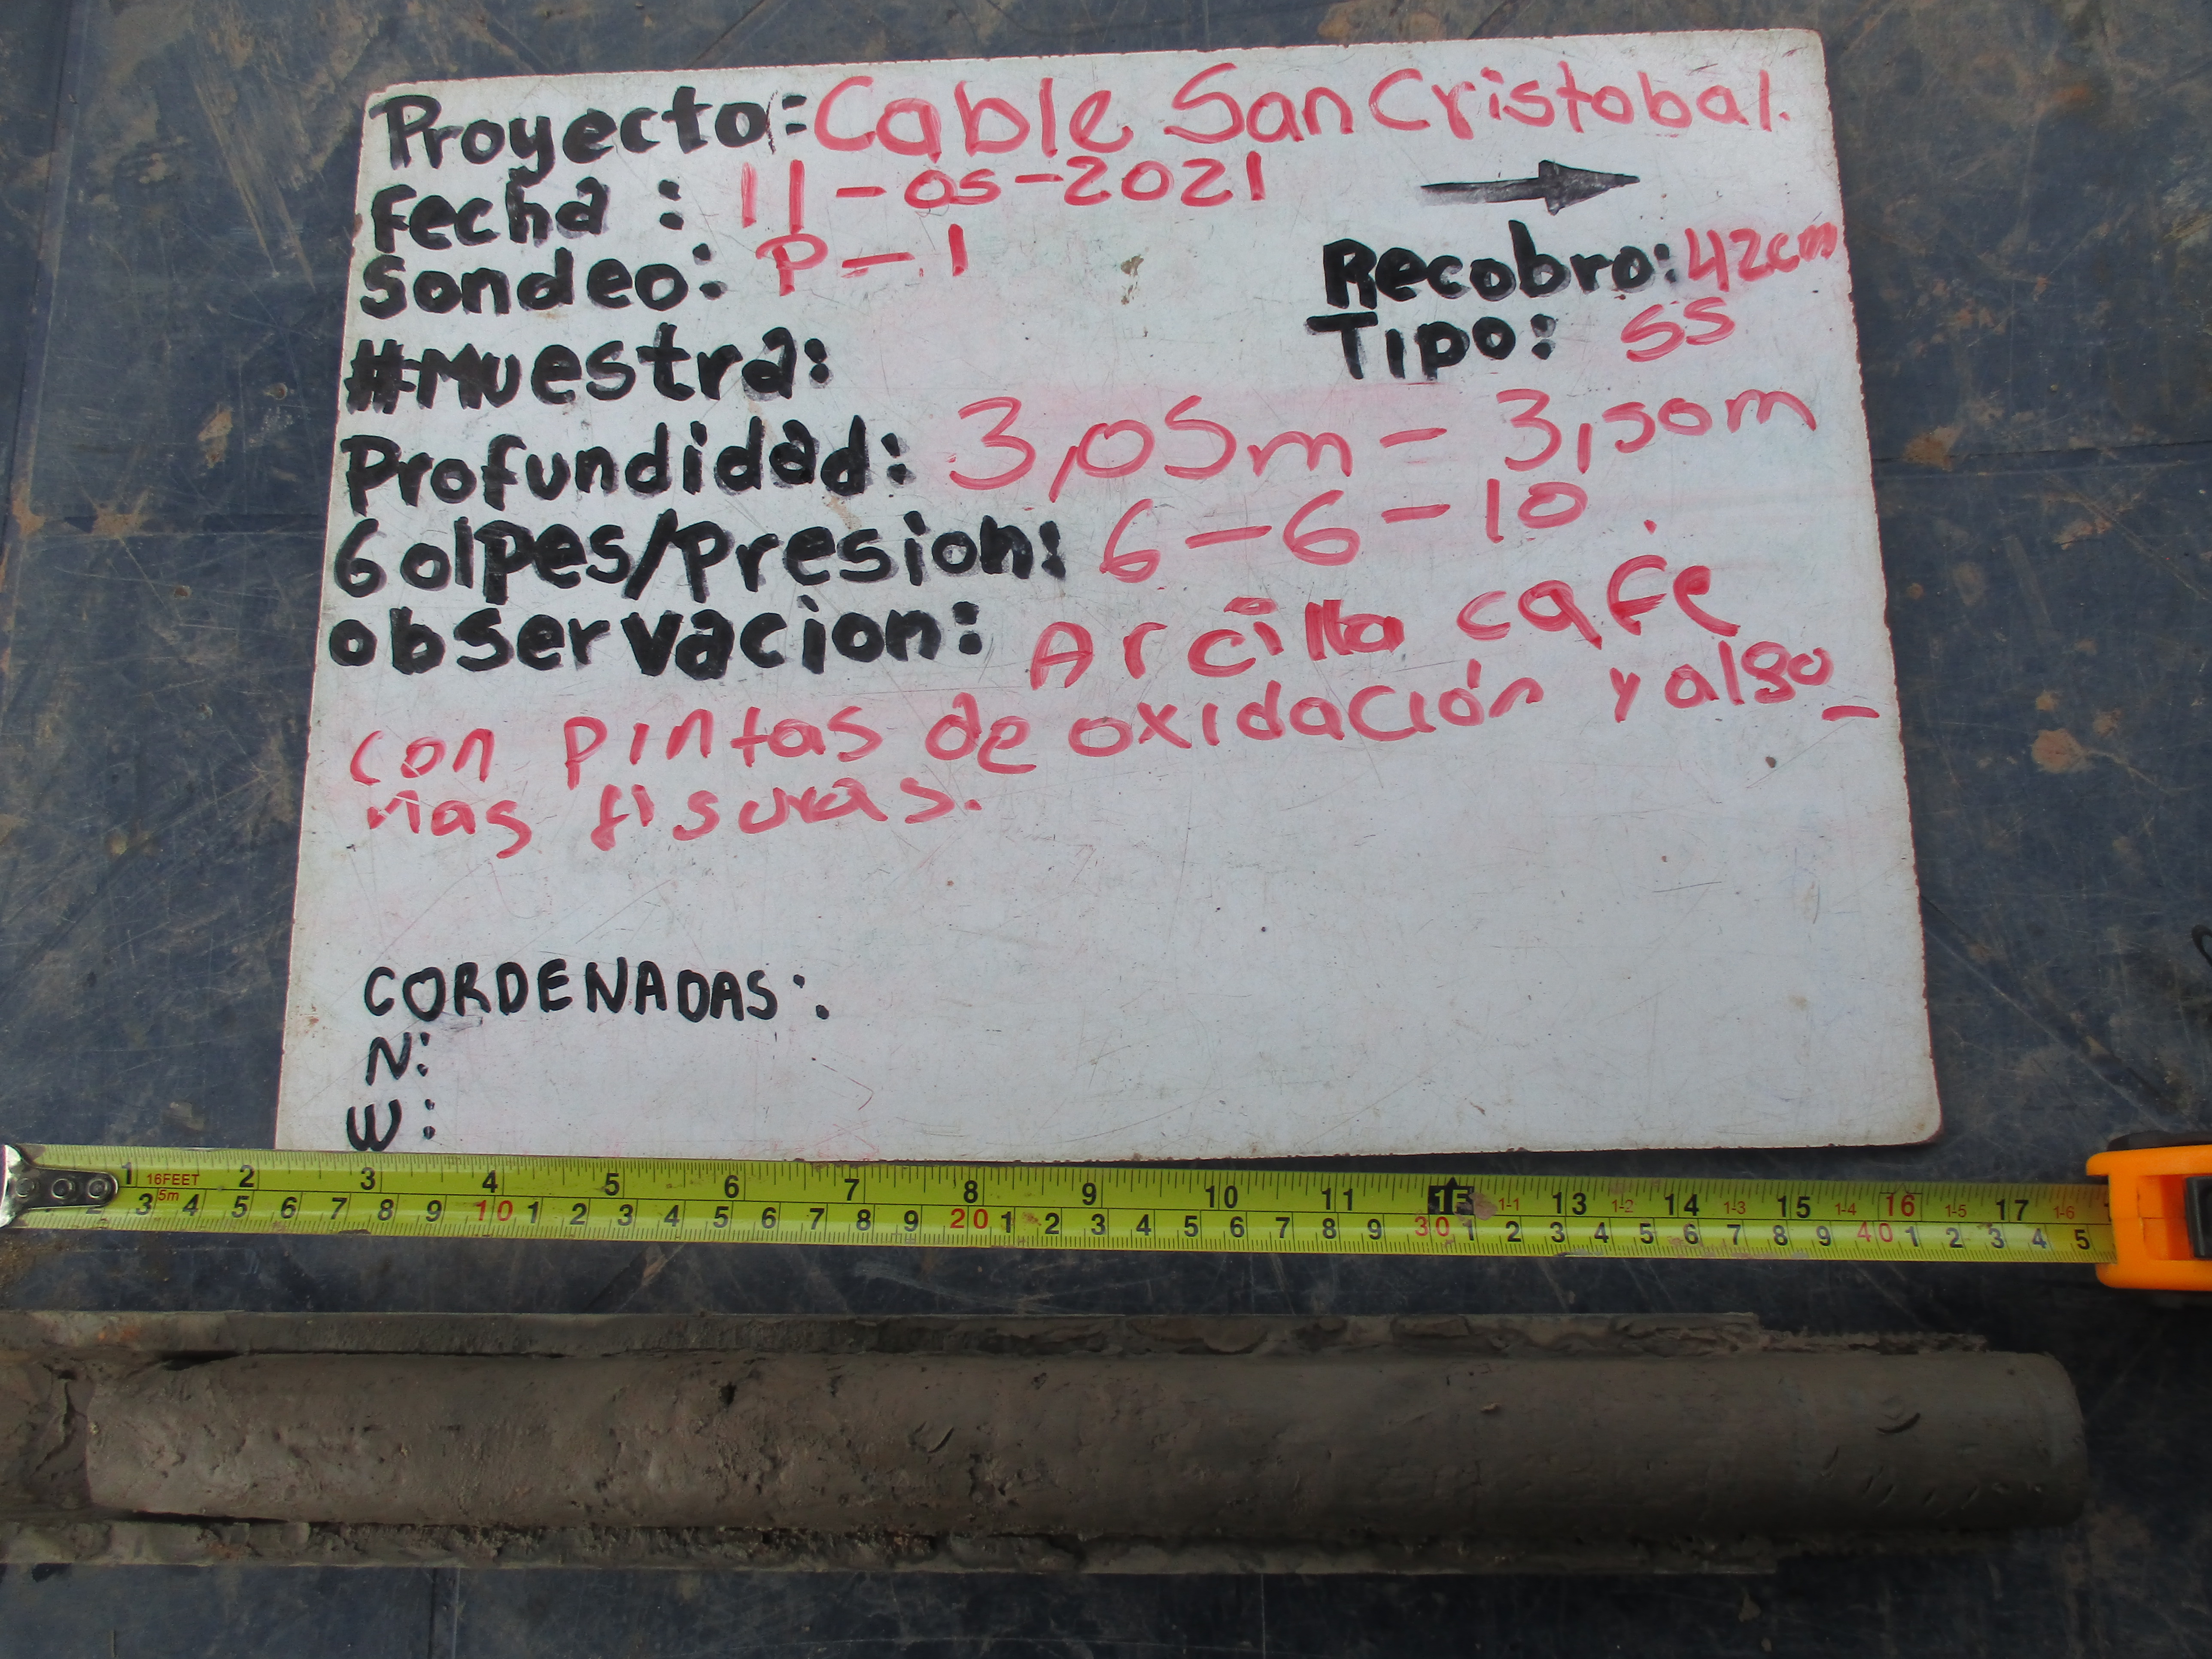 Proyecto: Cable San Cristobal.
fecha : 11-05-2021
Sondeo: P-1
Recobro: 42cm
#Muestra:
Tipo: SS
Profundidad: 3,05m = 3,50m
Golpes/Presion: 6-6-10
observacion: Arcilla cafe
con pintas de oxidación y algo_
nas fisuras.
CORDENADAS:
N:
W:
1 16FEET 2 3 4 5 6 7 8 9 10 11 13 1-1 1-2 14 1-3 15 1-4 16 1-5 17 1-6
2 3 5m 4 5 6 7 8 9 10 1 2 3 4 5 6 7 8 9 20 1 2 3 4 5 6 7 8 9 30 1 2 3 4 5 6 7 8 9 40 1 2 3 4 5